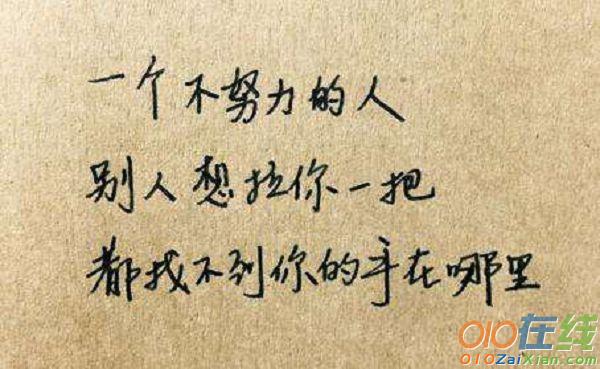 一个不努力的人
别人想拉你一把
都找不到你的手在哪里
010在线
010ZaiXian.com